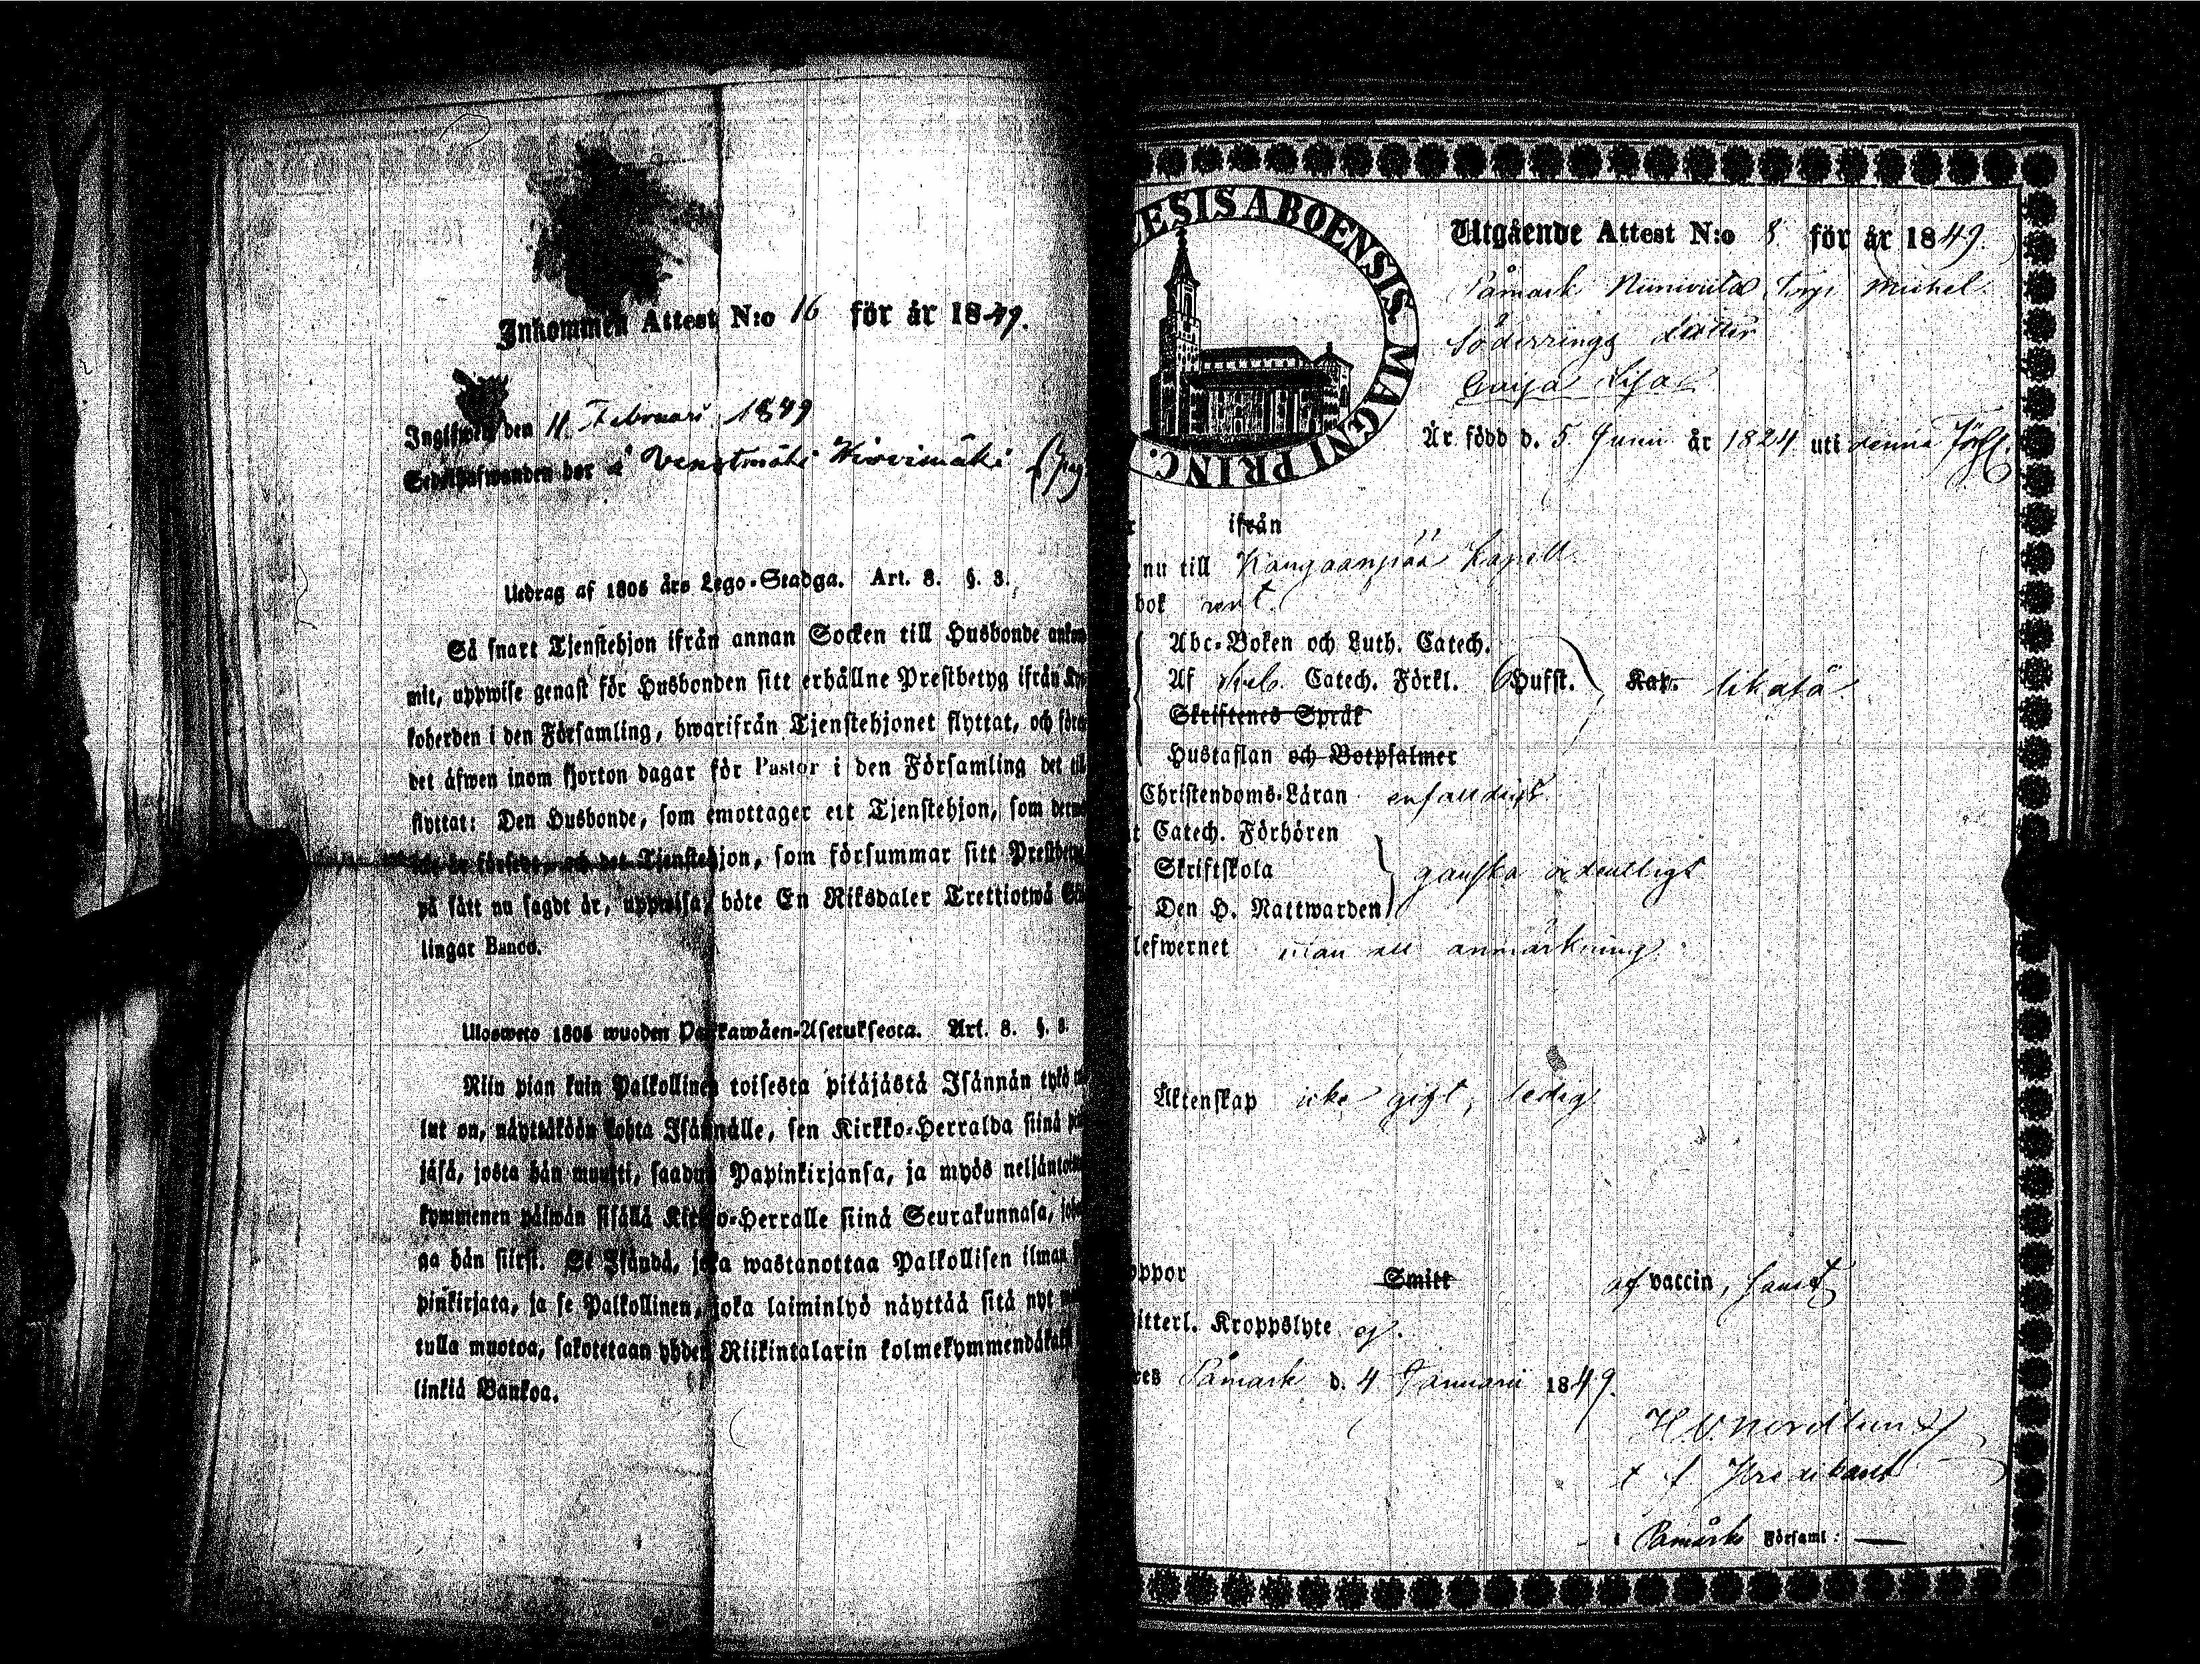 Inkommen Attest N:o 16 för år 1849.
den 11 Februari 1849
bor å
Utdrag af 1805 års Lego-Stadga. Art. 8. §. 3.
Så snart Tjenstehjon ifrån annan Socken till Husbonde
mit, uppwise genast för Husbonden sitt erhållne Prestbetyg ifrån
koherden i den Församling, hwarifrån Tjenstehjonet flyttat, och
det äfwen inom fjorton dagar för Pastor i den Församling det
flyttat: Den Husbonde, som emottager ett Tjenstehjon, som
Tjenstehjon, som försummar sitt
på sätt nu sagdt är, uppwisa, böte En Riksdaler Trettiotwå
lingar Banco.
Ulosweto 1805 wuoden Palkawäen-Asetuksesta. Art. 8. §. 3.
Niin pian kuin Palkollinen toisesta pitäjästä Isännän tykö
lut on, näyttäköön kohta Isännälle, sen Kirkko-Herralda siinä
jäsä, josta hän muutti, saadun Papinkirjansa, ja myös
kymmenen päiwän sisällä Kirkko-Herralle siinä Seurakunnasa,
ga hän siirsi. Se Isändä, joka wastanottaa Palkollisen ilman
pinkirjata, ja se Palkollinen, joka laiminlyö näyttää sitä nyt
tulla muotoa, sakotetaan yhden Riikintalarin
linkiä Bankoa.
ESIS ABOENSIS MAGNI PRINC.
Utgående Attest N:o 8 för år 1849.
Påmark Michel
Söderrings dotter
Caisa Lisa
Är född d. 5 Junii år 1824 uti denna Förs.
ifrån
nu till Kangaanpää Kapell
bok rent.
Abc-Boken och Luth. Catech.
Af Catech. Förkl. Hufst. Kap. likaså
Skriftenes Språk
Hustaflan och Botpsalmer
Christendoms-Läran enfaldigt
Catech. Förhören
Skriftskola ganska ordentligt
Den H. Nattwarden
lefwernet utan all anmärkning.
Äktenskap icke gift, ledig
oppor Smitt af vaccin, haft
itterl. Kroppslyte ej.
res Påmark d. 4 Januarii 1849.
H. V. Nordlund
i Påmarks Församl: